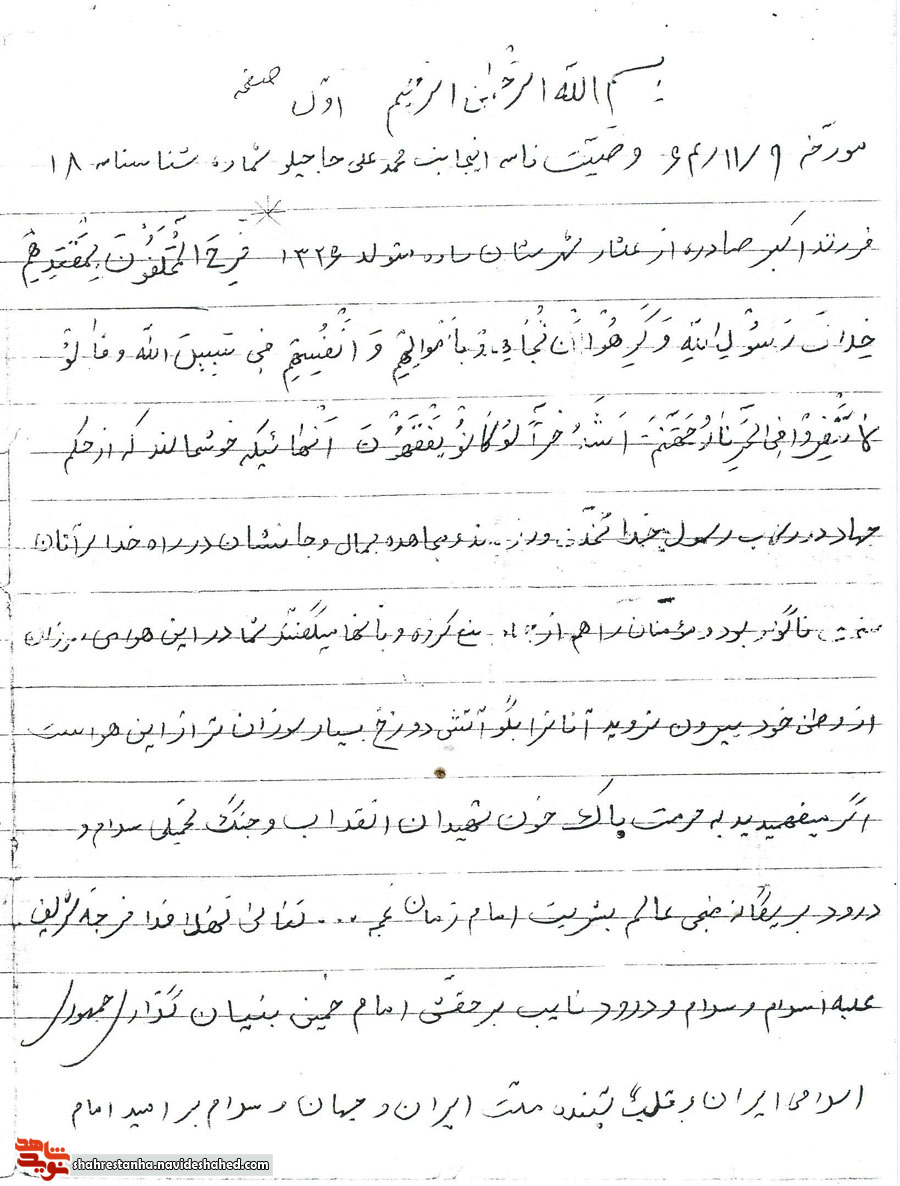 بسم الله الرحمن الرحیم اول صفحه
مورخه ۹/۱۱/۶۴ وصیت نامه اینجانب محمد علی حاجیلو شماره شناسنامه ۱۸
فرزند اکبر صادره از عشار شهرستان ساوه متولد ۱۳۲۶ فَرِحَ المُخَلَّفُونَ بِمَقعَدِهِم
خِلافَ رَسُولِ اللهِ وَ کَرِهُوا أَن یُجاهِدُو بِأَموالِهِم وَ أَنفُسِهِم فی سَبیِلَ الله و قالُو
لا تَنفِروا فِی الحَرِّ نارُ جَهَنَّمَ اَشَدُّ حَرّاً لَو کانُو یَفقَهُونَ آنهائیکه خوشحالند که از حکم
جهاد در رکاب رسول خدا تخلف ورزیدند و مجاهده بمال و جانشان در راه خدا بر آنان
سخت ناگوار بود و مؤمنان را هم از جهاد منع کرده و بآنها میگفتند شما در این هوای سوزان
از وطن خود بیرون نروید آنانرا بگو آتش دوزخ بسیار سوزان تر از این هواست
اگر میفهمیدید به حرمت پاک خون شهیدان انقلاب و جنگ تحمیلی سلام و
درود بر یگانه منجی عالم بشریت امام زمان عج ... تعالی فرجه شریف
علیه اسلام و سلام و درود نایب بر حقش امام خمینی بنیان گذار جمهور
اسلامی ایران و قلب تپنده ملت ایران و جهان و سلام بر امید امام
شاهد نوید
shahrestanha.navideshahed.com